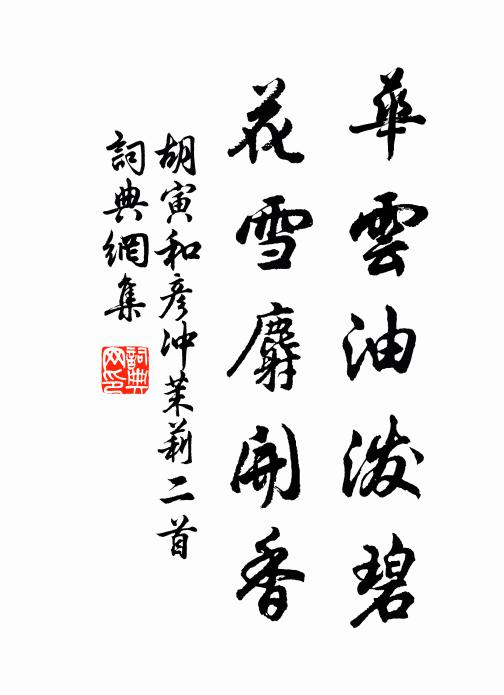 華雲油泼碧
花雪麝開香
胡寅和彦冲茉莉二首
詞典網集
詞典网印